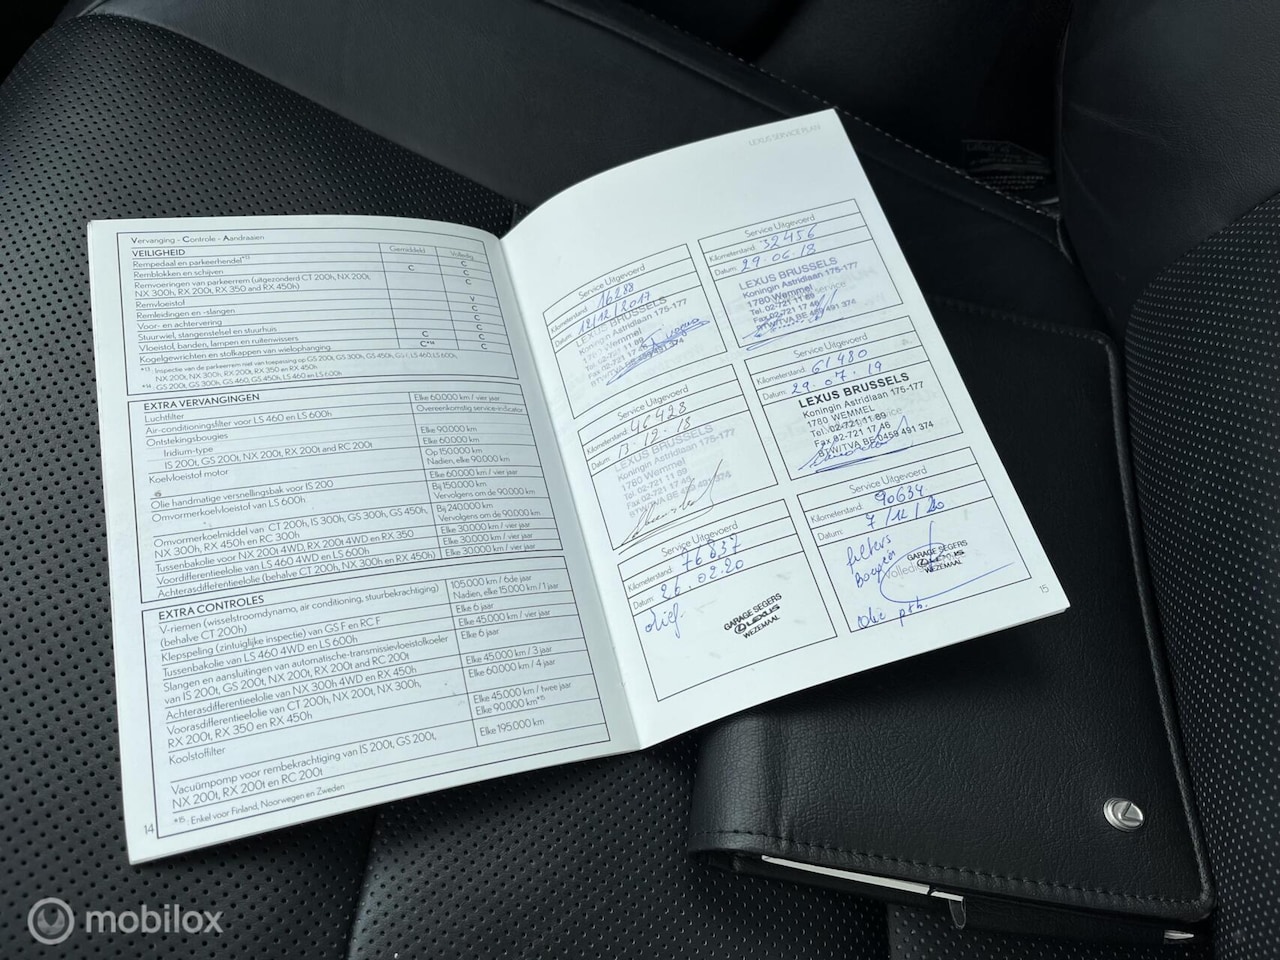 Vervanging - Controle - Aandraaien
VEILIGHEID
Gemiddeld
Volledig
Rempedaal en parkeerhendel*13
C
Remblokken en schijven
C
C
Remvoeringen van parkeerrem (uitgezonderd CT 200h, NX 200t,
NX 300h, RX 200t, RX 350 and RX 450h)
C
Remvloeistof
V
Remleidingen en -slangen
C
Voor- en achtervering
C
Stuurwiel, stangenstelsel en stuurhuis
C
C
Vloeistof, banden, lampen en ruitenwissers
C*14
C
Kogelgewrichten en stofkappen van wielophanging.
*13 : Inspectie van de parkeerrem niet van toepassing op GS 200t, GS 300h, GS 450h, GS F, LS 460, LS 600h,
NX 200t, NX 300h, RX 200t, RX 350 en RX 450h
*14 : GS 200t, GS 300h, GS 460, GS 450h, LS 460 en LS 600h
EXTRA VERVANGINGEN
Luchtfilter
Elke 60.000 km / vier jaar
Air-conditioningsfilter voor LS 460 en LS 600h
Overeenkomstig service-indicator
Ontstekingsbougies
Iridium-type
Elke 90.000 km
IS 200t, GS 200t, NX 200t, RX 200t and RC 200t
Elke 60.000 km
Koelvloeistof motor
Op 150.000 km
Nadien, elke 90.000 km
Olie handmatige versnellingsbak voor IS 200
Elke 60.000 km / vier jaar
Omvormerkoelvloeistof van LS 600h
Bij 150.000 km
Vervolgens om de 90.000 km
Omvormerkoelmiddel van CT 200h, IS 300h, GS 300h, GS 450h,
NX 300h, RX 450h en RC 300h
Bij 240.000 km
Vervolgens om de 90.000 km
Tussenbakolie voor NX 200t 4WD, RX 200t 4WD en RX 350
Elke 30.000 km / vier jaar
Voordifferentieelolie van LS 460 4WD en LS 600h
Elke 30.000 km / vier jaar
Achterasdifferentieelolie (behalve CT 200h, NX 300h en RX 450h)
Elke 30.000 km / vier jaar
EXTRA CONTROLES
V-riemen (wisselstroomdynamo, air conditioning, stuurbekrachtiging)
(behalve CT 200h)
105.000 km / 6de jaar
Nadien, elke 15.000 km / 1 jaar
Klepspeling (zintuiglijke inspectie) van GS F en RC F
Elke 6 jaar
Tussenbakolie van LS 460 4WD en LS 600h
Elke 45.000 km / vier jaar
Slangen en aansluitingen van automatische-transmissievloeistofkoeler
van IS 200t, GS 200t, NX 200t, RX 200t and RC 200t
Elke 6 jaar
Achterasdifferentieelolie van NX 300h 4WD en RX 450h
Elke 45.000 km / 3 jaar
Voorasdifferentieelolie van CT 200h, NX 200t, NX 300h,
RX 200t, RX 350 en RX 450h
Elke 60.000 km / 4 jaar
Koolstoffilter
Elke 45.000 km / twee jaar
Elke 90.000 km*15
Vacuümpomp voor rembekrachtiging van IS 200t, GS 200t,
NX 200t, RX 200t en RC 200t
Elke 195.000 km
*15 : Enkel voor Finland, Noorwegen en Zweden
14
LEXUS SERVICE PLAN
Service Uitgevoerd
Kilometerstand: 16288
Datum: 12/12/2017
LEXUS BRUSSELS
Koningin Astridlaan 175-177
1780 Wemmel
Tel. 02-721 11 89
Fax 02-721 17 46
BTW/TVA BE 459 491 374
Service Uitgevoerd
Kilometerstand: 32456
Datum: 29.06.18
LEXUS BRUSSELS
Koningin Astridlaan 175-177
1780 Wemmel
Tel. 02-721 11 89
Fax 02-721 17 46
BTW/TVA BE 459 491 374
Service Uitgevoerd
Kilometerstand: 46428
Datum: 13-12-18
LEXUS BRUSSELS
Koningin Astridlaan 175-177
1780 Wemmel
Tel. 02-721 11 89
Fax 02-721 17 46
BTW/TVA BE 459 491 374
Service Uitgevoerd
Kilometerstand: 61480
Datum: 29.07.19
LEXUS BRUSSELS
Koningin Astridlaan 175-177
1780 WEMMEL
Tel. 02-721 11 89
Fax 02-721 17 46
BTW/TVA BE 0459 491 374
Service Uitgevoerd
Kilometerstand: 76637
Datum: 26.02.20
GARAGE SEGERS
LEXUS
WEZEMAAL
Service Uitgevoerd
Kilometerstand: 90634
Datum: 7/12/20
filters
GARAGE SEGERS
LEXUS
WEZEMAAL
olie
15
mobilox